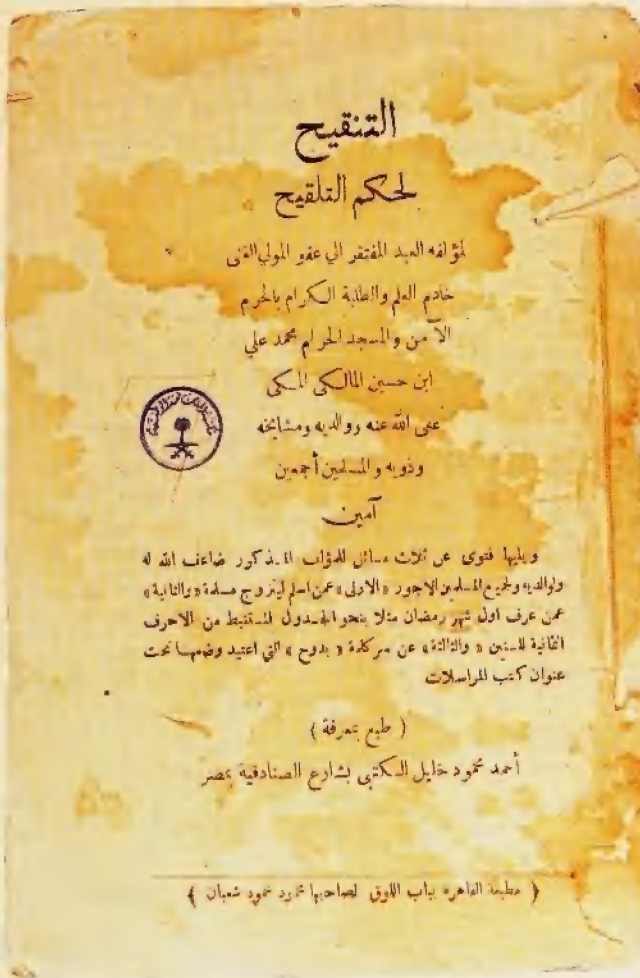 التنقيح
لحكم التلقيح
لمؤلفه العبد المفتقر الي عفو المولي الغنى
خادم العلم والطلبة الكرام بالحرم
الآمن والمسجد الحرام محمد علي
ابن حسين المالكى المكى
عفى الله عنه ووالديه ومشايخه
وذويه والمسلمين أجمعين
آمين
ويليها فتوى عن ثلاث مسائل للمؤلف المذكور ضاعف الله له
ولوالديه ولجميع المسلمين الاجور «الاولى» عمن اسلم ليتزوج مسلمة «والثانية»
عمن عرف اول شهر رمضان مثلا بنحو الجدول المستنبط من الاحرف
الثمانية للسنين «والثالثة» عن مركلمة «بدوح» التي اعتيد وضعها تحت
عنوان كتب المراسلات
( طبع بمعرفة )
أحمد محمود خليل الكتبى بشارع الصنادقية بمصر
( مطبعة القاهرة بباب اللوق لصاحبها محمود محمود شعبان )